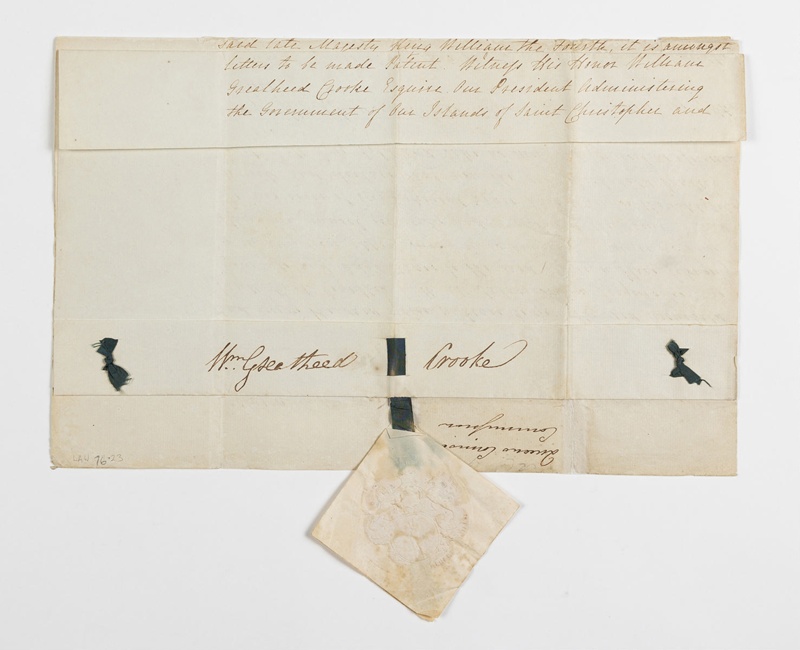 said late Majesty King William the Fourth, it is amongst
letters to be made Patent Witness His Honor William
Greatheed Crooke Esquire Our President Administering
the Government of Our Islands of Saint Christopher and
Wm Greatheed Crooke
Commission
LAW 76.23